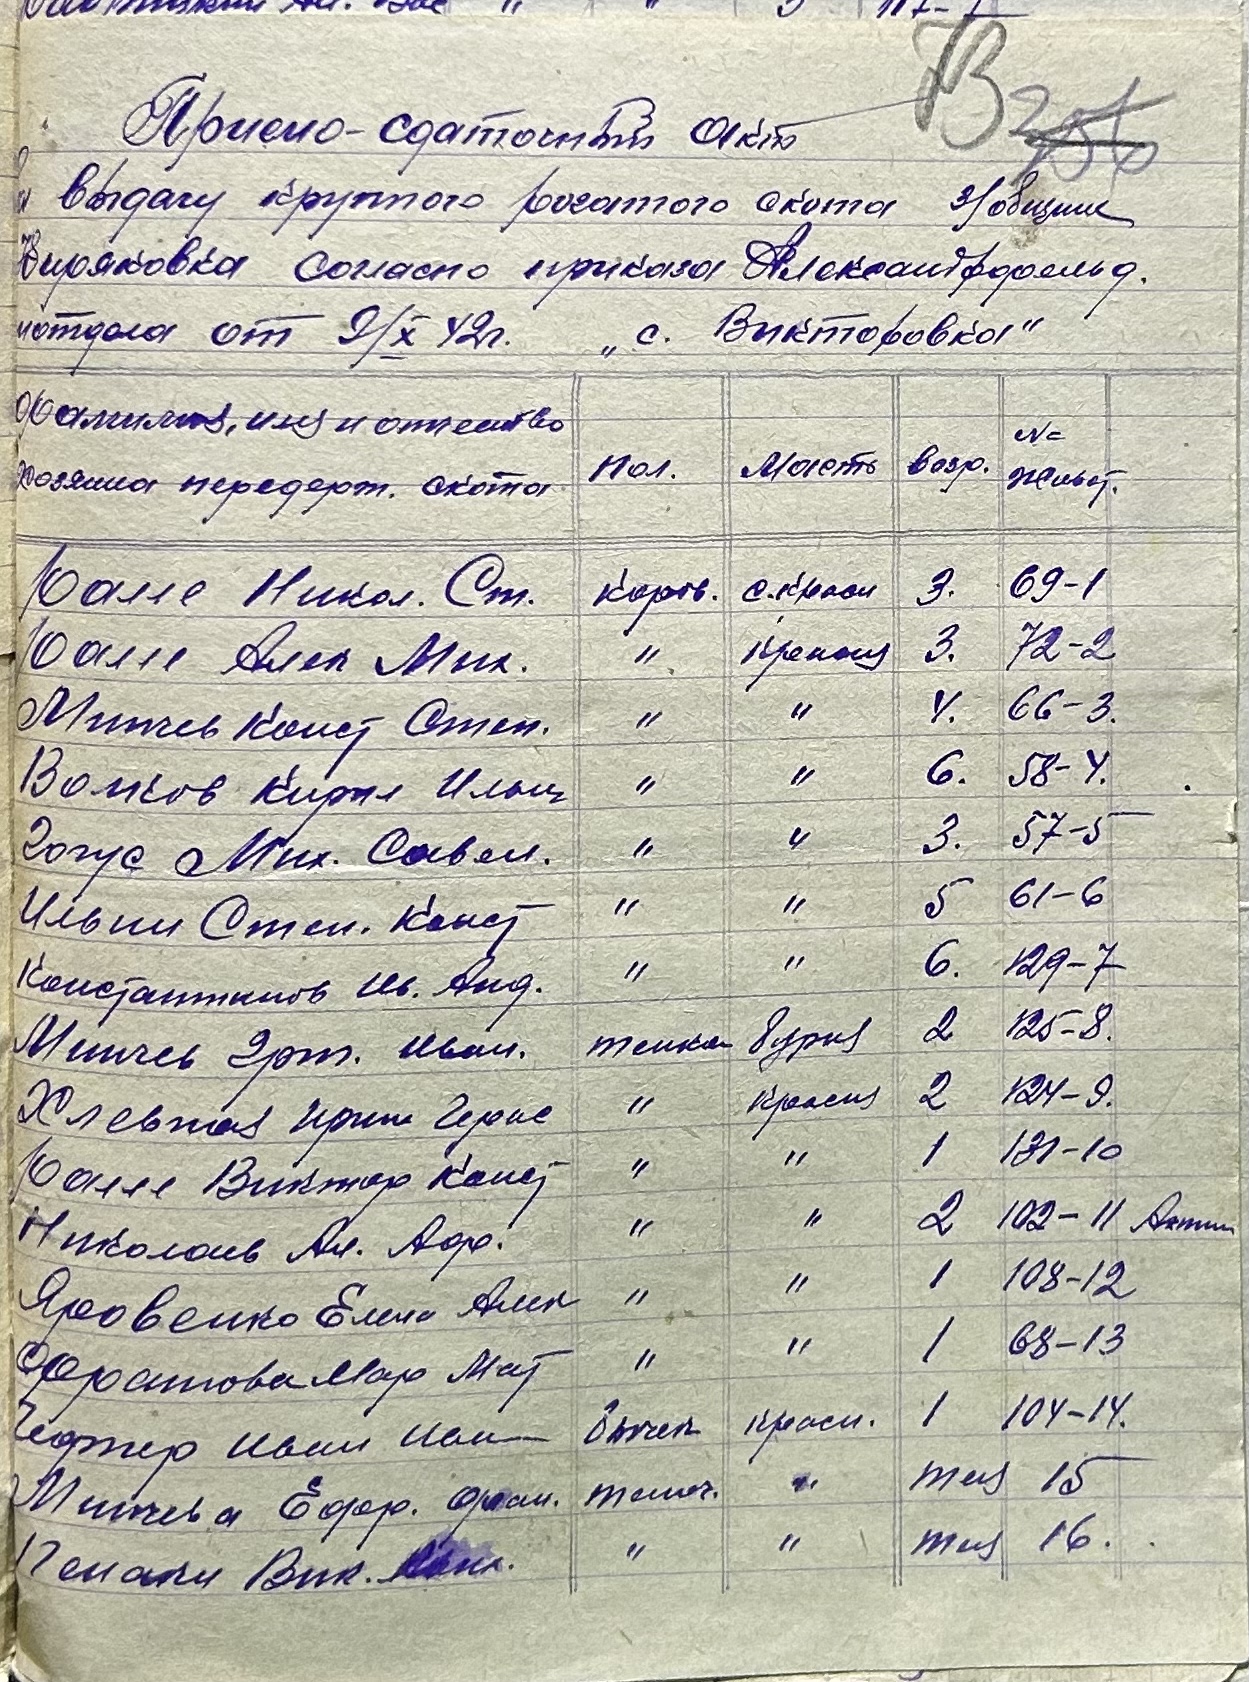 Приемо-сдаточный акт
выдачу крупного рогатого скота з/общине
Киряковка согласно приказа Александрфельд.
отдела от 9/X 42г. „с. Викторовка"
Фамилия, имя и отчество хозяина передерж. скота Пол. Масть возр. № живот.
Коров. с. красн 3. 69-1
Алек Мих. " Красная 3. 72-2
Минчев Конст Степ. " " 4. 66-3.
Волков Кирил Ильич " " 6. 58-4.
Мих. Савел. " " 3. 57-5
Ильин Степ. Конст " " 5 61-6
Константинов Ив. Анд. " " 6. 129-7
Минчев Иван. телка бурая 2 125-8.
" Красная 2 124-9.
Виктор Конст " " 1 131-10
Николаев Ал. " " 2 102-11
Яровенко Елена Алек " " 1 108-12
Мар Мат " " 1 68-13
Иван Иван бычек красн. 1 104-14.
Минчева Ефр. телоч. " тел 15
Вик. " " тел 16.